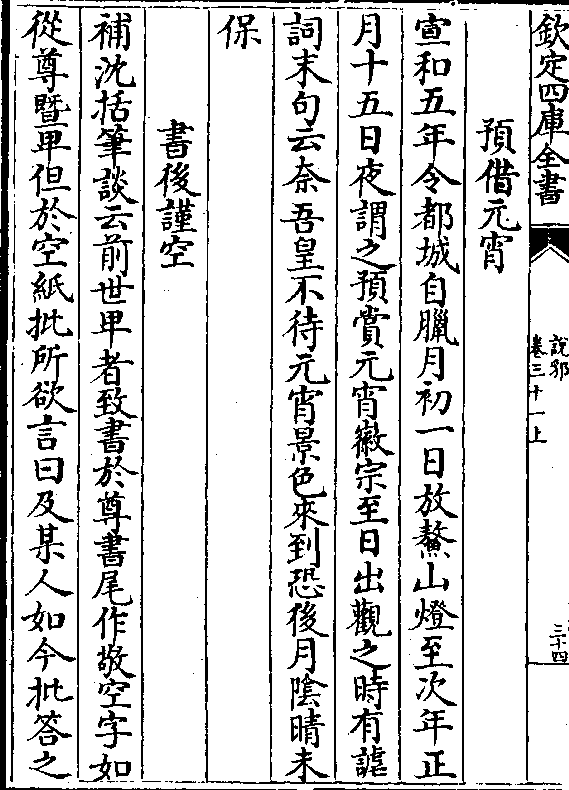 欽定四庫全書
說郛
卷三十一上
三十四
預借元宵
宣和五年令都城自臘月初一日放鰲山燈至次年正
月十五日夜謂之預賞元宵徽宗至日出觀之時有謔
詞末句云奈吾皇不待元宵景色來到恐後月陰晴未
保
書後謹空
補沈括筆談云前世卑者致書於尊書尾作敬空字如
從尊暨卑但於空紙批所欲言曰及某人如今批答之